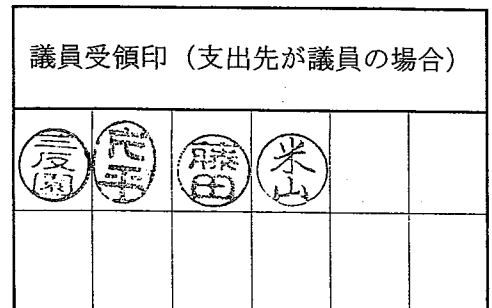 議員受領印（支出先が議員の場合）
三反園
藤田
米山